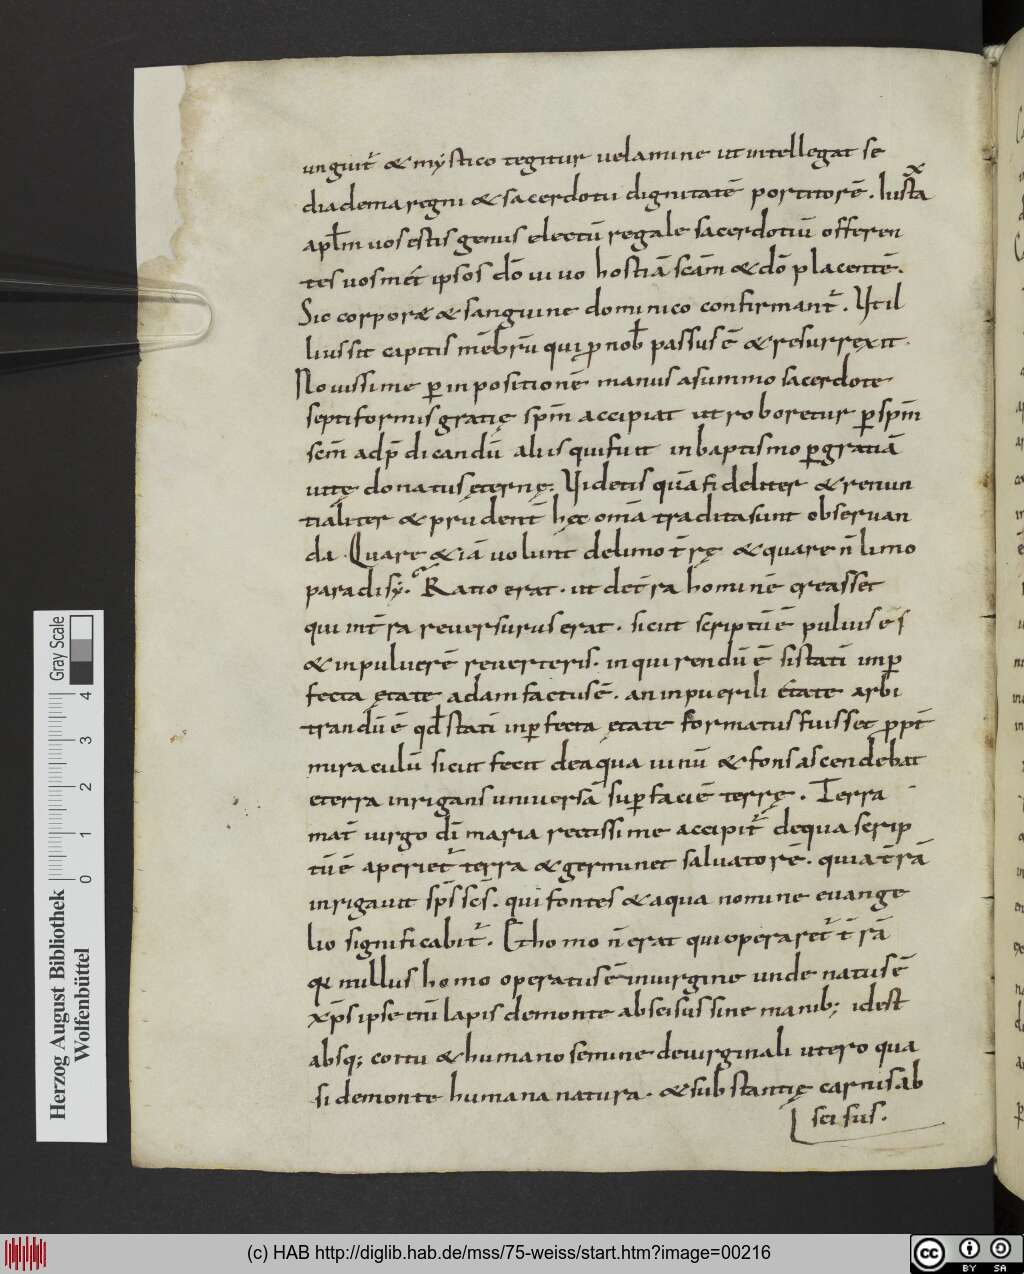 unguit̃ & mystico tegitur uelamine ut intellegat se
diadema regni & sacerdotii dignitatē portitorē. Iuxta
apłm uos estis genus electū regale sacerdotiū offeren
tes uosmet ipsos dō uiuo hostiā scām & dō placentē.
Sic corporæ & sanguine dominico confirmant̃. Ut il
lius sit capitis mēbrū qui p nob passus ē & resurrexit.
Nouissime p inpositionē manus a summo sacerdote
septiformis gratię spm̄ accipiat ut roboretur p spm̄
scm̄ ad p̄dicandū aliis qui fuit in baptismo p gratiā
uitę donatus ęternę. Uidetis quā fideliter & renun
tialiter & prudent̄ hęc omā tradita sunt obseruan
da. Quare & iā uolunt de limo t̄rę & quare n̄ limo
paradisỹ. Ratio erat. ut de t̄ra hominē creasset
qui in t̄ra reuersurus erat. sicut scriptū ē puluis es
& in puluerē reuerteris. inquirendū ē si stati inp
fecta ętate adam factus ē. an in puerili ętate arbi
trandū ē qd stati inpfecta ętate formatus fuisset ppt̄
miraculū sicut fecit de aqua uinū & fons ascendebat
e terra inrigans uniuersā supfaciē terrę. Terra
mat̄ uirgo dī maria rectissime accipit̃ de qua scrip
tū ē aperiet̃ terra & germinet saluatorē. quia t̄rā
inrigauit sp̄s sc̄s. qui fontes & aqua nomine euange
lio significabit̃. Et homo n̄ erat qui operaret̃ t̄rā
quia nullus homo operatus ē in uirgine unde natus ē
xp̄s ipse eni lapis de monte abscisus sine manib; idest
absq; coitu & humano semine de uirginali utero qua
si de monte humana natura. & substantię carnis ab
scisus.
Herzog August Bibliothek
Wolfenbüttel
0 1 2 3 4
Gray Scale
(c) HAB http://diglib.hab.de/mss/75-weiss/start.htm?image=00216
cc BY SA